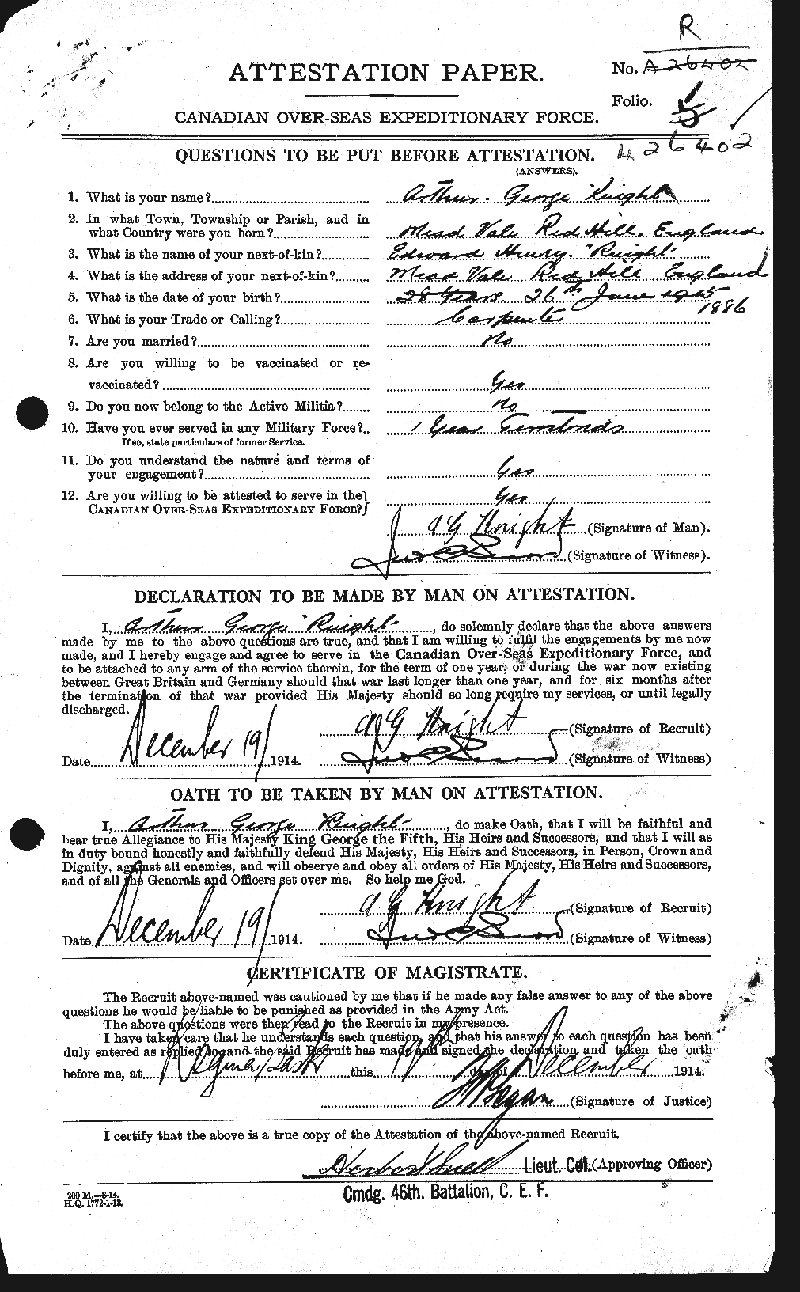 R
ATTESTATION PAPER.
No. A 26402
Folio. 5
426402
CANADIAN OVER-SEAS EXPEDITIONARY FORCE.
QUESTIONS TO BE PUT BEFORE ATTESTATION.
(ANSWERS).
1. What is your name? Arthur George Knight
2. In what Town, Township or Parish, and in
what Country were you born? Mead Vale Red Hill. England
3. What is the name of your next-of-kin? Edward Henry Knight
4. What is the address of your next-of-kin? Mead Vale Red Hill England
5. What is the date of your birth? 28 Years 26th June 1915
1886
6. What is your Trade or Calling? Carpenter
7. Are you married? No
8. Are you willing to be vaccinated or re-
vaccinated? Yes
9. Do you now belong to the Active Militia? No
10. Have you ever served in any Military Force? 1 Year
If so, state particulars of former Service.
11. Do you understand the nature and terms of
your engagement? Yes
12. Are you willing to be attested to serve in the
CANADIAN OVER-SEAS EXPEDITIONARY FORCE? Yes
A G Knight (Signature of Man).
(Signature of Witness).
DECLARATION TO BE MADE BY MAN ON ATTESTATION.
I, Arthur George Knight, do solemnly declare that the above answers
made by me to the above questions are true, and that I am willing to fulfil the engagements by me now
made, and I hereby engage and agree to serve in the Canadian Over-Seas Expeditionary Force, and
to be attached to any arm of the service therein, for the term of one year, or during the war now existing
between Great Britain and Germany should that war last longer than one year, and for six months after
the termination of that war provided His Majesty should so long require my services, or until legally
discharged.
A G Knight (Signature of Recruit)
Date December 19/ 1914. (Signature of Witness)
OATH TO BE TAKEN BY MAN ON ATTESTATION.
I, Arthur George Knight, do make Oath, that I will be faithful and
bear true Allegiance to His Majesty King George the Fifth, His Heirs and Successors, and that I will as
in duty bound honestly and faithfully defend His Majesty, His Heirs and Successors, in Person, Crown and
Dignity, against all enemies, and will observe and obey all orders of His Majesty, His Heirs and Successors,
and of all the Generals and Officers set over me. So help me God.
A G Knight (Signature of Recruit)
Date December 19/ 1914. (Signature of Witness)
CERTIFICATE OF MAGISTRATE.
The Recruit above-named was cautioned by me that if he made any false answer to any of the above
questions he would be liable to be punished as provided in the Army Act.
The above questions were then read to the Recruit in my presence.
I have taken care that he understands each question, and that his answer to each question has been
duly entered as replied to, and the said Recruit has made and signed the declaration and taken the oath
before me, at Regina, Sask this 19 day of December 1914.
(Signature of Justice)
I certify that the above is a true copy of the Attestation of the above-named Recruit.
Herbert Snell Lieut. Col. (Approving Officer)
Cmdg. 46th. Battalion, C. E. F.
200 M.—8-14.
H.Q. 1772-1-13.